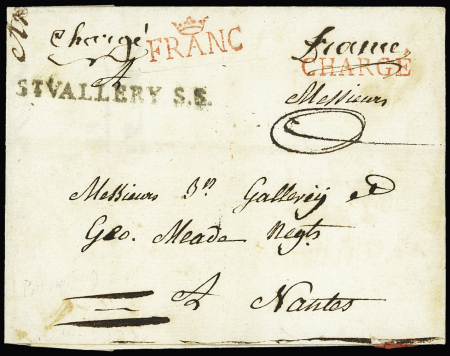 Chargé
FRANC
franc
CHARGÉ
A
STVALLERY S.S.
Messieurs
Messieurs Jn Gallerey &
Geo. Meade Negts
A Nantes